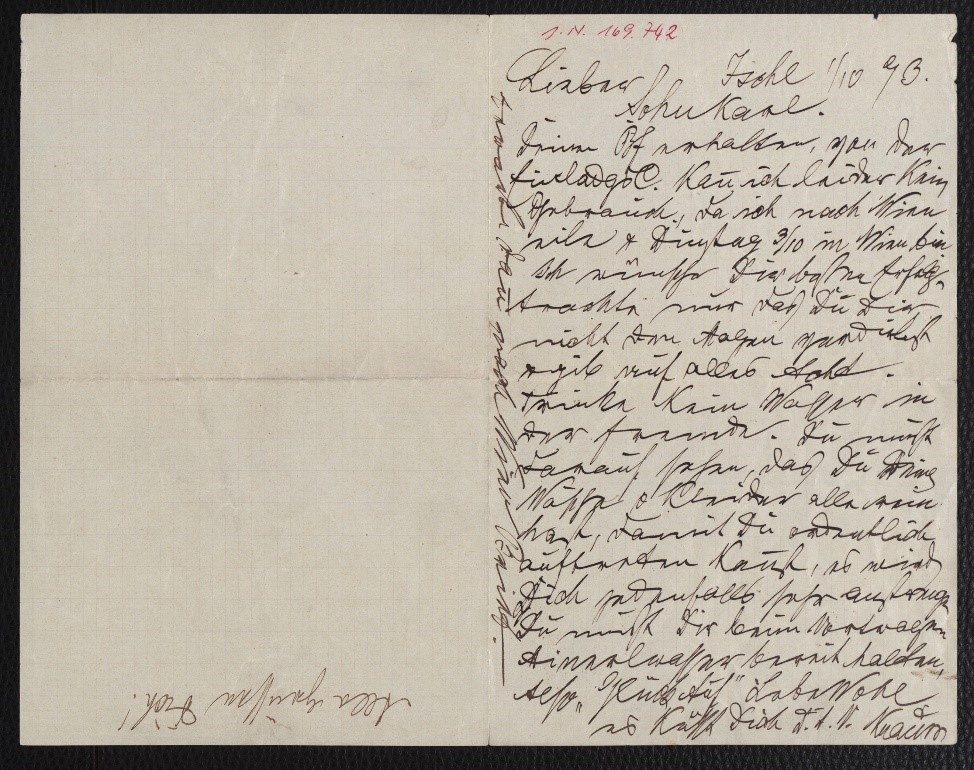 J.N. 169.742
Ischl 1/10 93.
Lieber
Sohn Karl.
Deinen erhalten, von der
kann ich leider kein
Gebrauch, da ich nach Wien
eile & Dinstag 3/10 in Wien bin
Ich wünsche Dir besten Erfolg.
trachte nur das Du Dir
nicht den Magen verdirbst
& gib auf alles Acht.
Trinke kein Wasser in
der Fremde. Du mußt
darauf sehen, das Du Deine
Wäsche & Kleider alle rein
hast, damit Du ordentlich
auftreten kannst, es wird
Dich jedenfalls sehr anstrengen
Du mußt Dir beim Vortragen
Mineralwasser bereit halten,
Also „Glück Auf" & Lebe Wohl
es küßt Dich D. d. V. Kraus
Alle grüssen Dich!